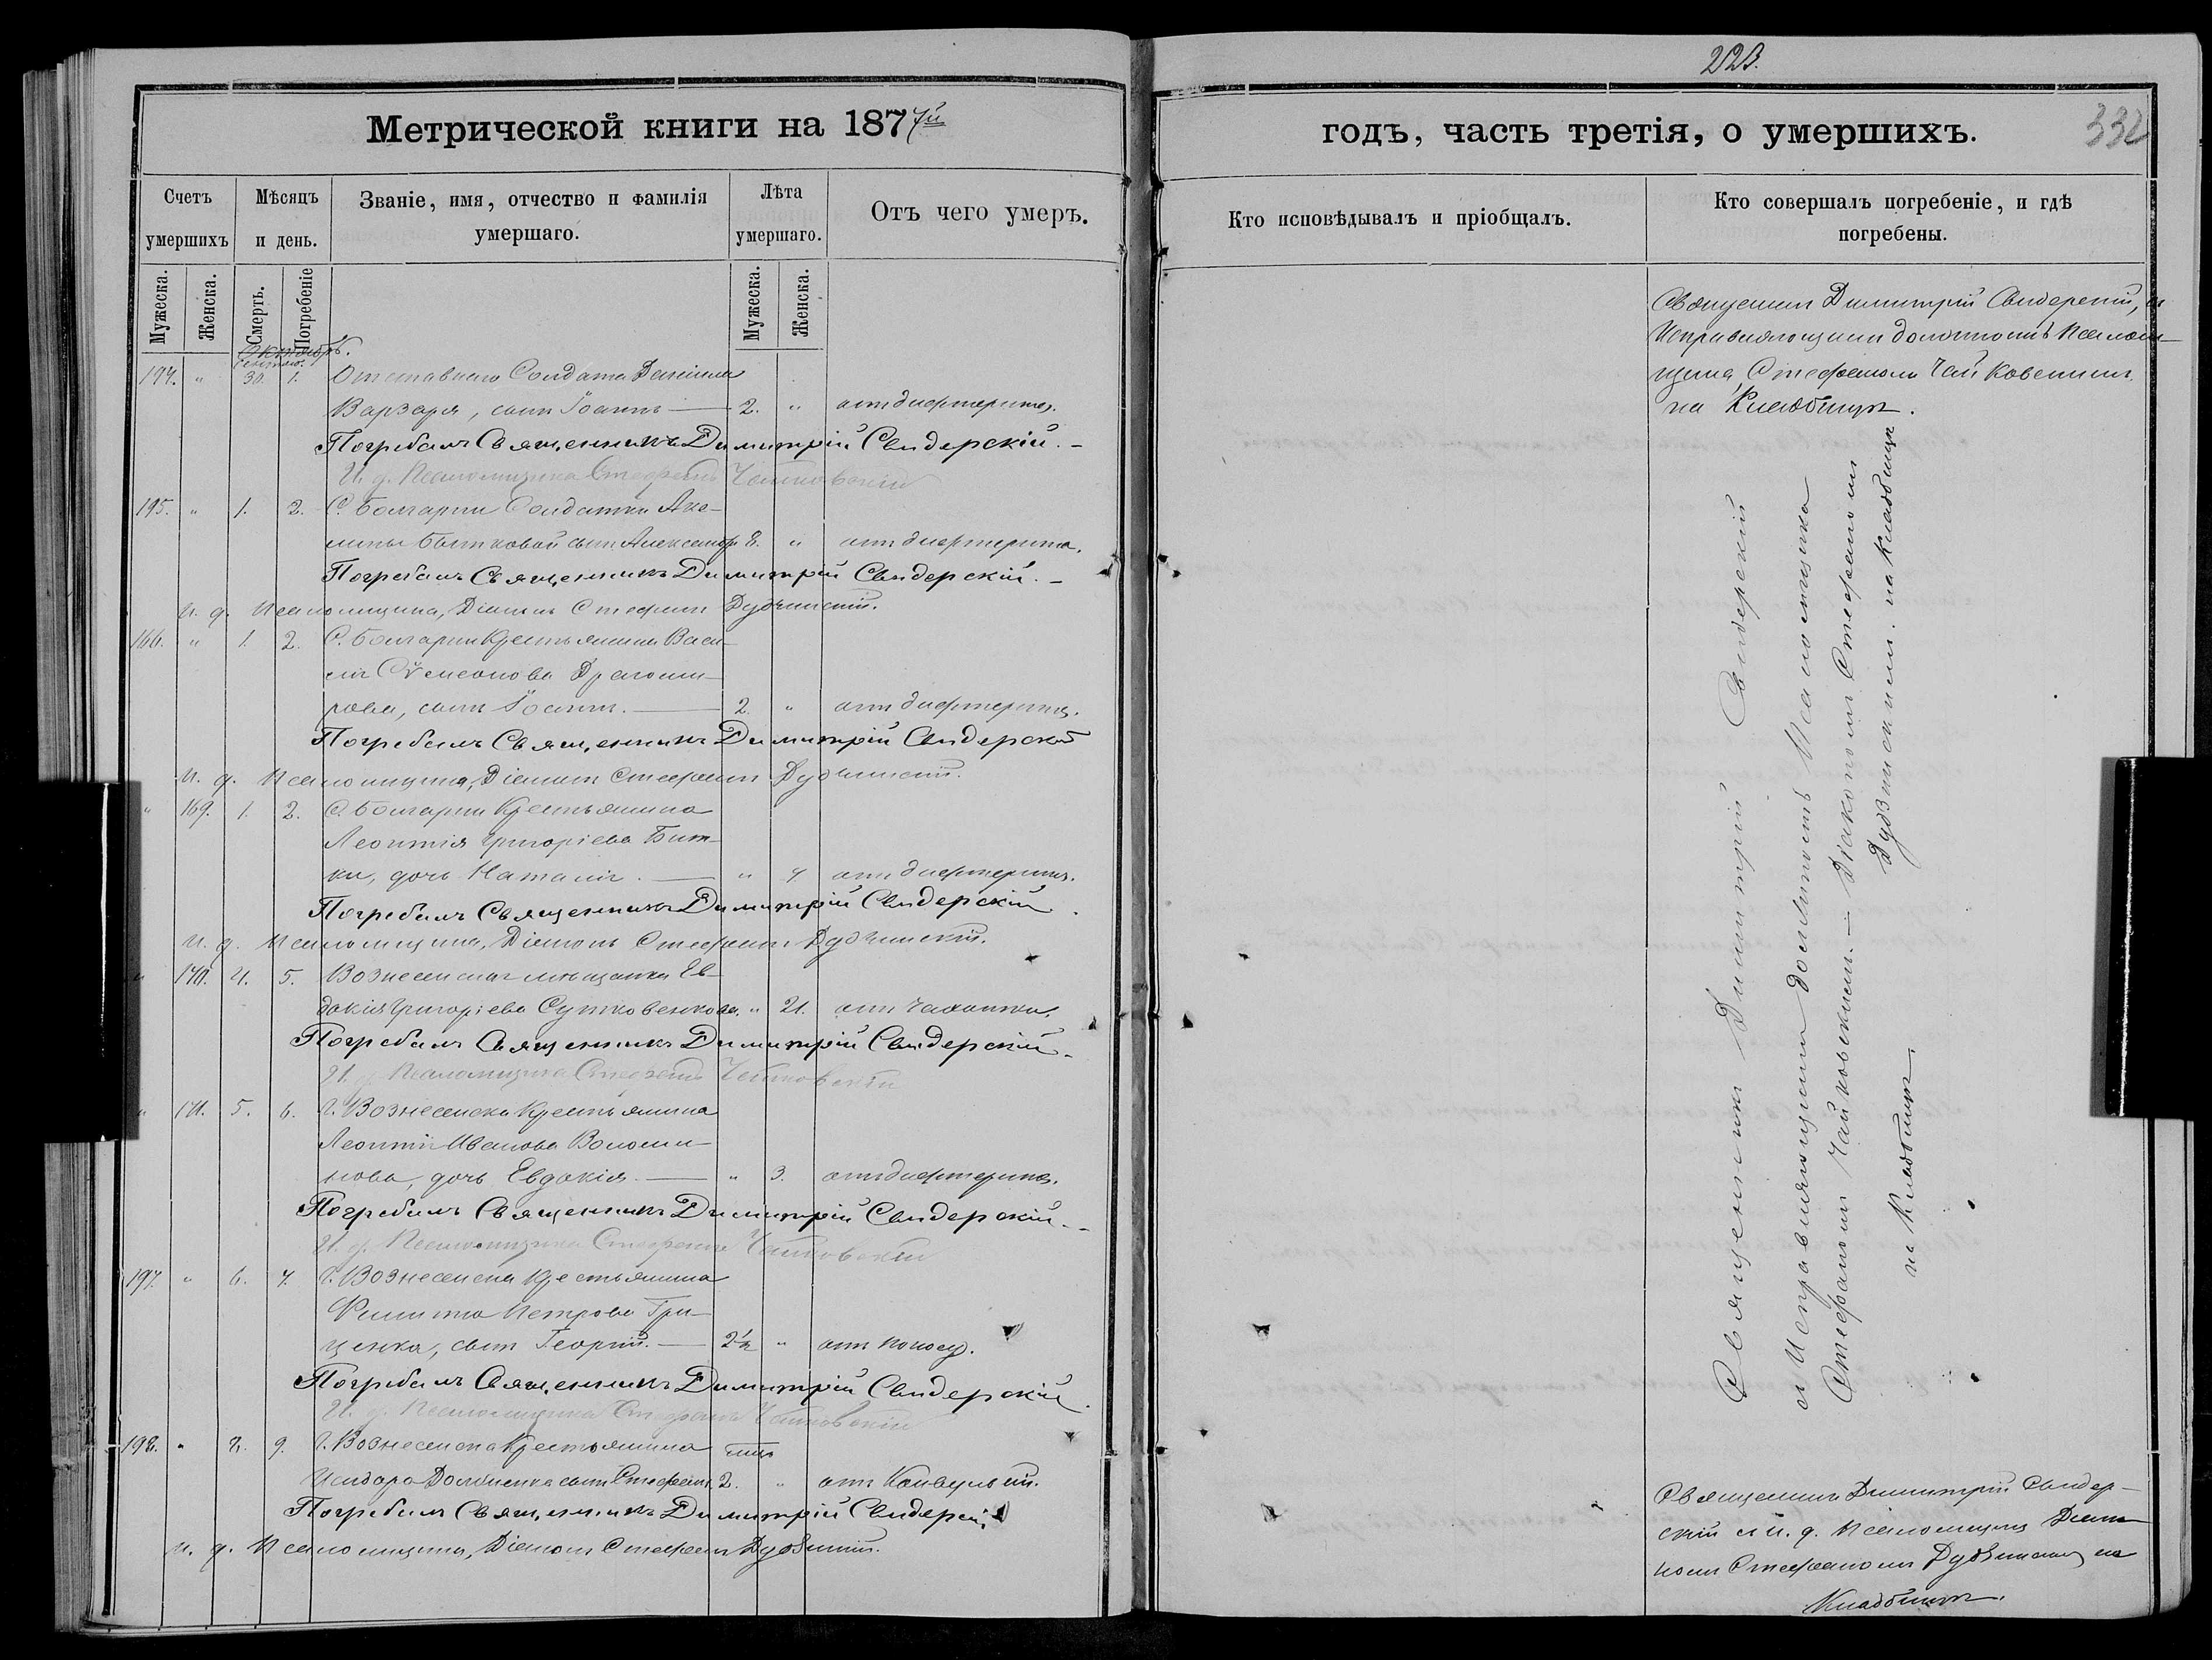 Метрической книги на 1877й
Счетъ умершихъ
Мѣсяцъ и день.
Званіе, имя, отчество и фамилія умершаго.
Лѣта умершаго.
Отъ чего умеръ.
Мужеска.
Женска.
Смерть.
Погребеніе
Мужеска.
Женска.
Октябрь.
194. " 30. 1. Отставнаго Солдата Даніила
Варзаря, сынъ Іоаннъ — 2. " отъ дифтерита.
Погребалъ Священникъ Димитрій Свидерскій. –
И. д. Псаломщика Стефанъ Чайковскій
195. " 1. 2. С. Болгарки Солдатки Аки-
лины Бытковой сынъ Александръ 8. " отъ дифтерита.
Погребалъ Священникъ Димитрій Свидерскій. –
и. д. Псаломщика, Діаконъ Стефанъ Дубзинскій.
166. " 1. 2. С. Болгарки Крестьянина Васи-
лія Сѵмеонова Драгоми-
рова, сынъ Іоаннъ. — 2. " отъ дифтерита.
Погребалъ Священникъ Димитрій Свидерскій
и. д. Псаломщика, Діаконъ Стефанъ Дубзинскій.
" 169. 1. 2. С. Болгарки Крестьянина
Леонтія Григоріева Бит-
ки, дочь Наталія. — " 4 отъ дифтерита.
Погребалъ Священникъ Димитрій Свидерскій.
и. д. Псаломщика, Діаконъ Стефанъ Дубзинскій.
" 170. 4. 5. Вознесенская мѣщанка Ев-
докія Григоріева Сутковенкова. " 21. отъ чахотки.
Погребалъ Священникъ Димитрій Свидерскій. –
И. д. Псаломщика Стефанъ Чайковскій
" 171. 5. 6. г. Вознесенска Крестьянина
Леонтія Иванова Волоши-
нова, дочь Евдокія. — " 3. отъ дифтерита.
Погребалъ Священникъ Димитрій Свидерскій. –
И. д. Псаломщика Стефанъ Чайковскій
197. " 6. 7. г. Вознесенска Крестьянина
Филиппа Петрова Гри-
ценка, сынъ Георгій. — 2½ " отъ поносу.
Погребалъ Священникъ Димитрій Свидерскій.
И. д. Псаломщика Стефанъ Чайковскій
198. " 8. 9. г. Вознесенска Крестьянина
Исидора сынъ Стефанъ 2. " отъ Конвульсій.
Погребалъ Священникъ Димитрій Свидерскій
и. д. Псаломщика, Діаконъ Стефанъ Дубзинскій.
223.
332
годъ, часть третія, о умершихъ.
Кто исповѣдывалъ и пріобщалъ.
Кто совершалъ погребеніе, и гдѣ погребены.
Священникъ Димитрій Свидерскій, съ
Исправляющимъ должность Псалом-
щика, Стефаномъ Чайковскимъ
на Кладбищѣ.
Священникъ Димитрій Свидерскій
съ Исправляющими должность Псаломщика
Стефаномъ Чайковскимъ. – Діакономъ Стефаномъ
Дубзинскимъ. на Кладбищѣ
на Кладбищѣ.
Священникъ Димитрій Свидер-
скій съ и. д. Псаломщика Діа-
кономъ Стефаномъ Дубзинскимъ на
Кладбищѣ.